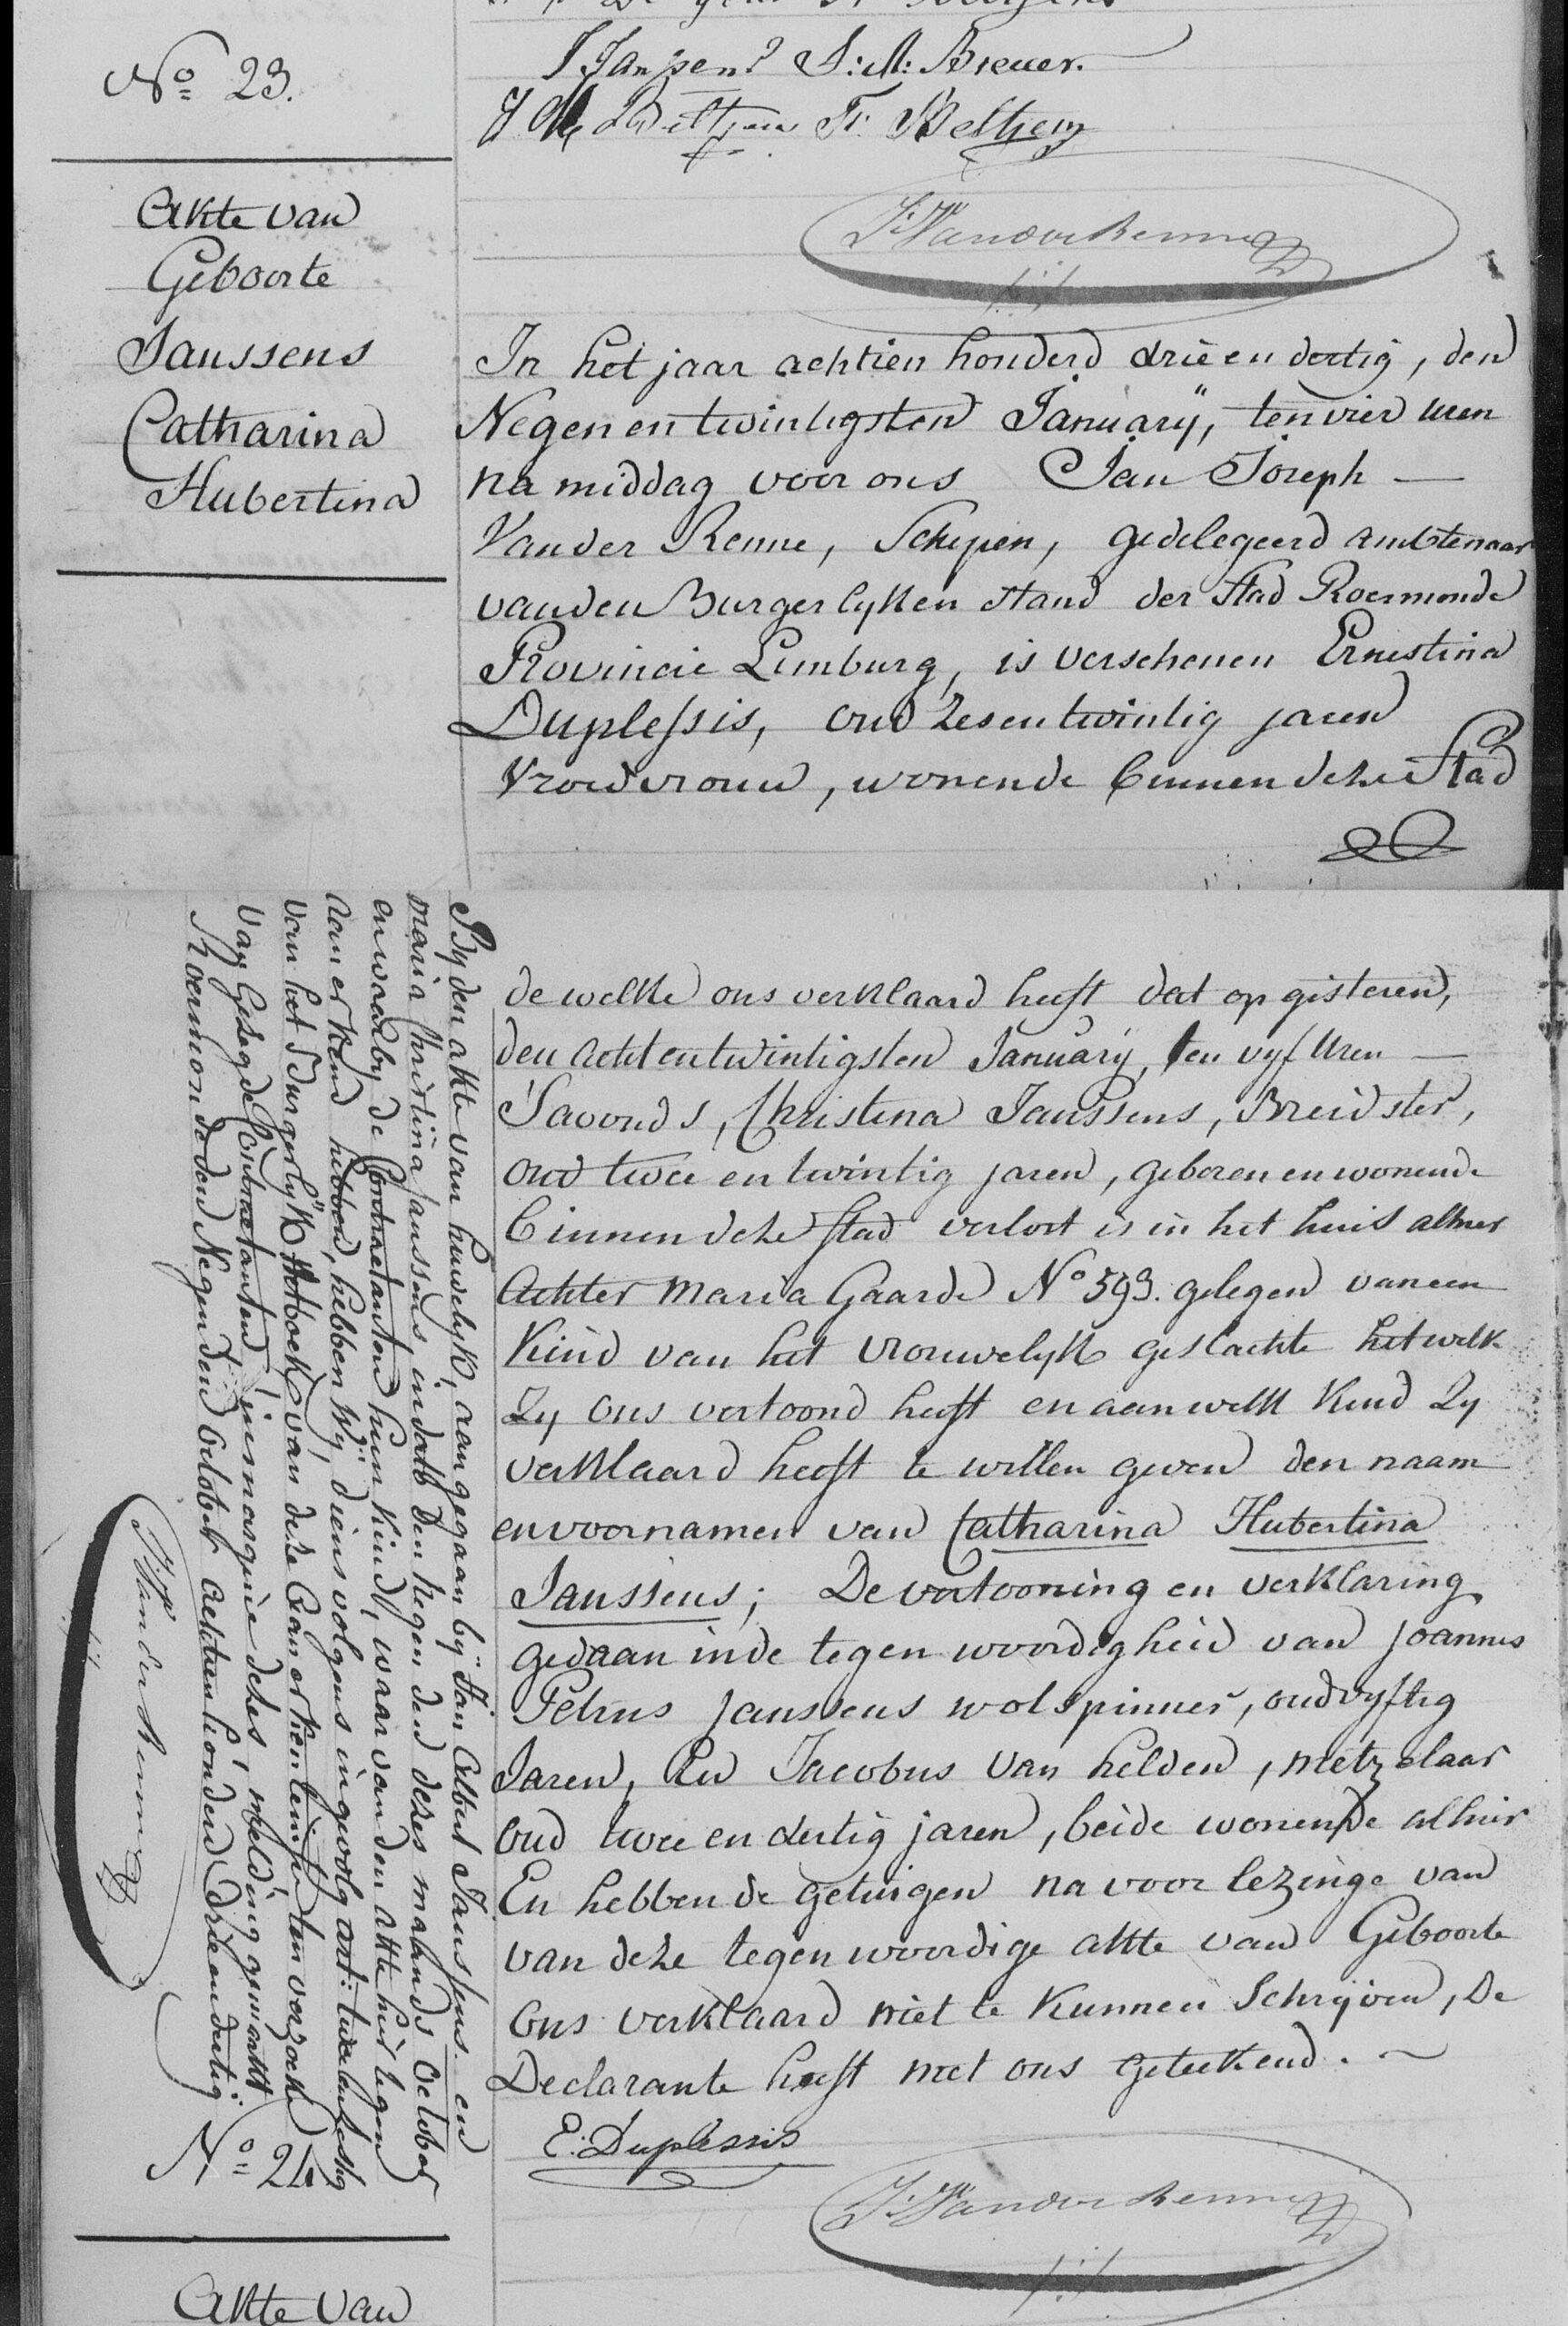 J Janssens J: M: Breuer.
Fr. Beltjens
J: J Van der Renne
No 23.
Akte van
Geboorte
Janssens
Catharina
Hubertina
In het jaar achtien honderd drie en dertig, den
Negen en twintigsten January, ten vier uren
na middag voor ons Jan Joseph —
Vander Renne, Schepen, gedelegeerd ambtenaar
van den Burgerlyken stand der Stad Roermonde
Provincie Limburg, is verschenen Ernestina
Duplessis, oud zes en twintig jaren
Vroedvrouw, wonende binnen deze Stad
de welke ons verklaard heeft dat op gisteren,
den acht en twintigsten January, ten vyf uren —
s'avonds, Christina Janssens, Breidster,
oud twee en twintig jaren, geboren en wonende
binnen deze stad verlost is in het huis alhier
Achter Maria Gaarde No 593. gelegen van een
Kind van het vrouwelyk geslachte hetwelk
Zy ons vertoond heeft en aan welk Kind Zy
verklaard heeft te willen geven den naam
en voornamen van Catharina Hubertina
Janssens; De vertooning en verklaring
gedaan in de tegenwoordigheid van Joannes
Petrus Janssens wolspinner, oud vyftig
Jaren, en Jacobus van helden, metzelaar
oud twee en dertig jaren, beide wonende alhier
En hebben de getuigen na voorlezinge van
van deze tegenwoordige akte van Geboorte
ons verklaard niet te kunnen Schryven, De
Declarante heeft met ons geteekend. ~
E: Duplessis
J: J Van der Renne
By den akte van huwelyk, aangegaan by Jan Albert Janssens en
Maria Christina Janssens, in dato den negenden dezes maands October
en waarby de Contractanten hun kind, waar van den akte hier tegen
aan erkend hebben, hebben Wy, dien volgens in gevolg art:
van het Burgerlyk Wetboek van deze aanerkentenisse ten verzoeke
van gezegde Contractanten, in margine dezes, melding gemaakt
Roermonde den Negenden October achtien honderd drie en dertig.
J: J Van der Renne
No 24
Akte van